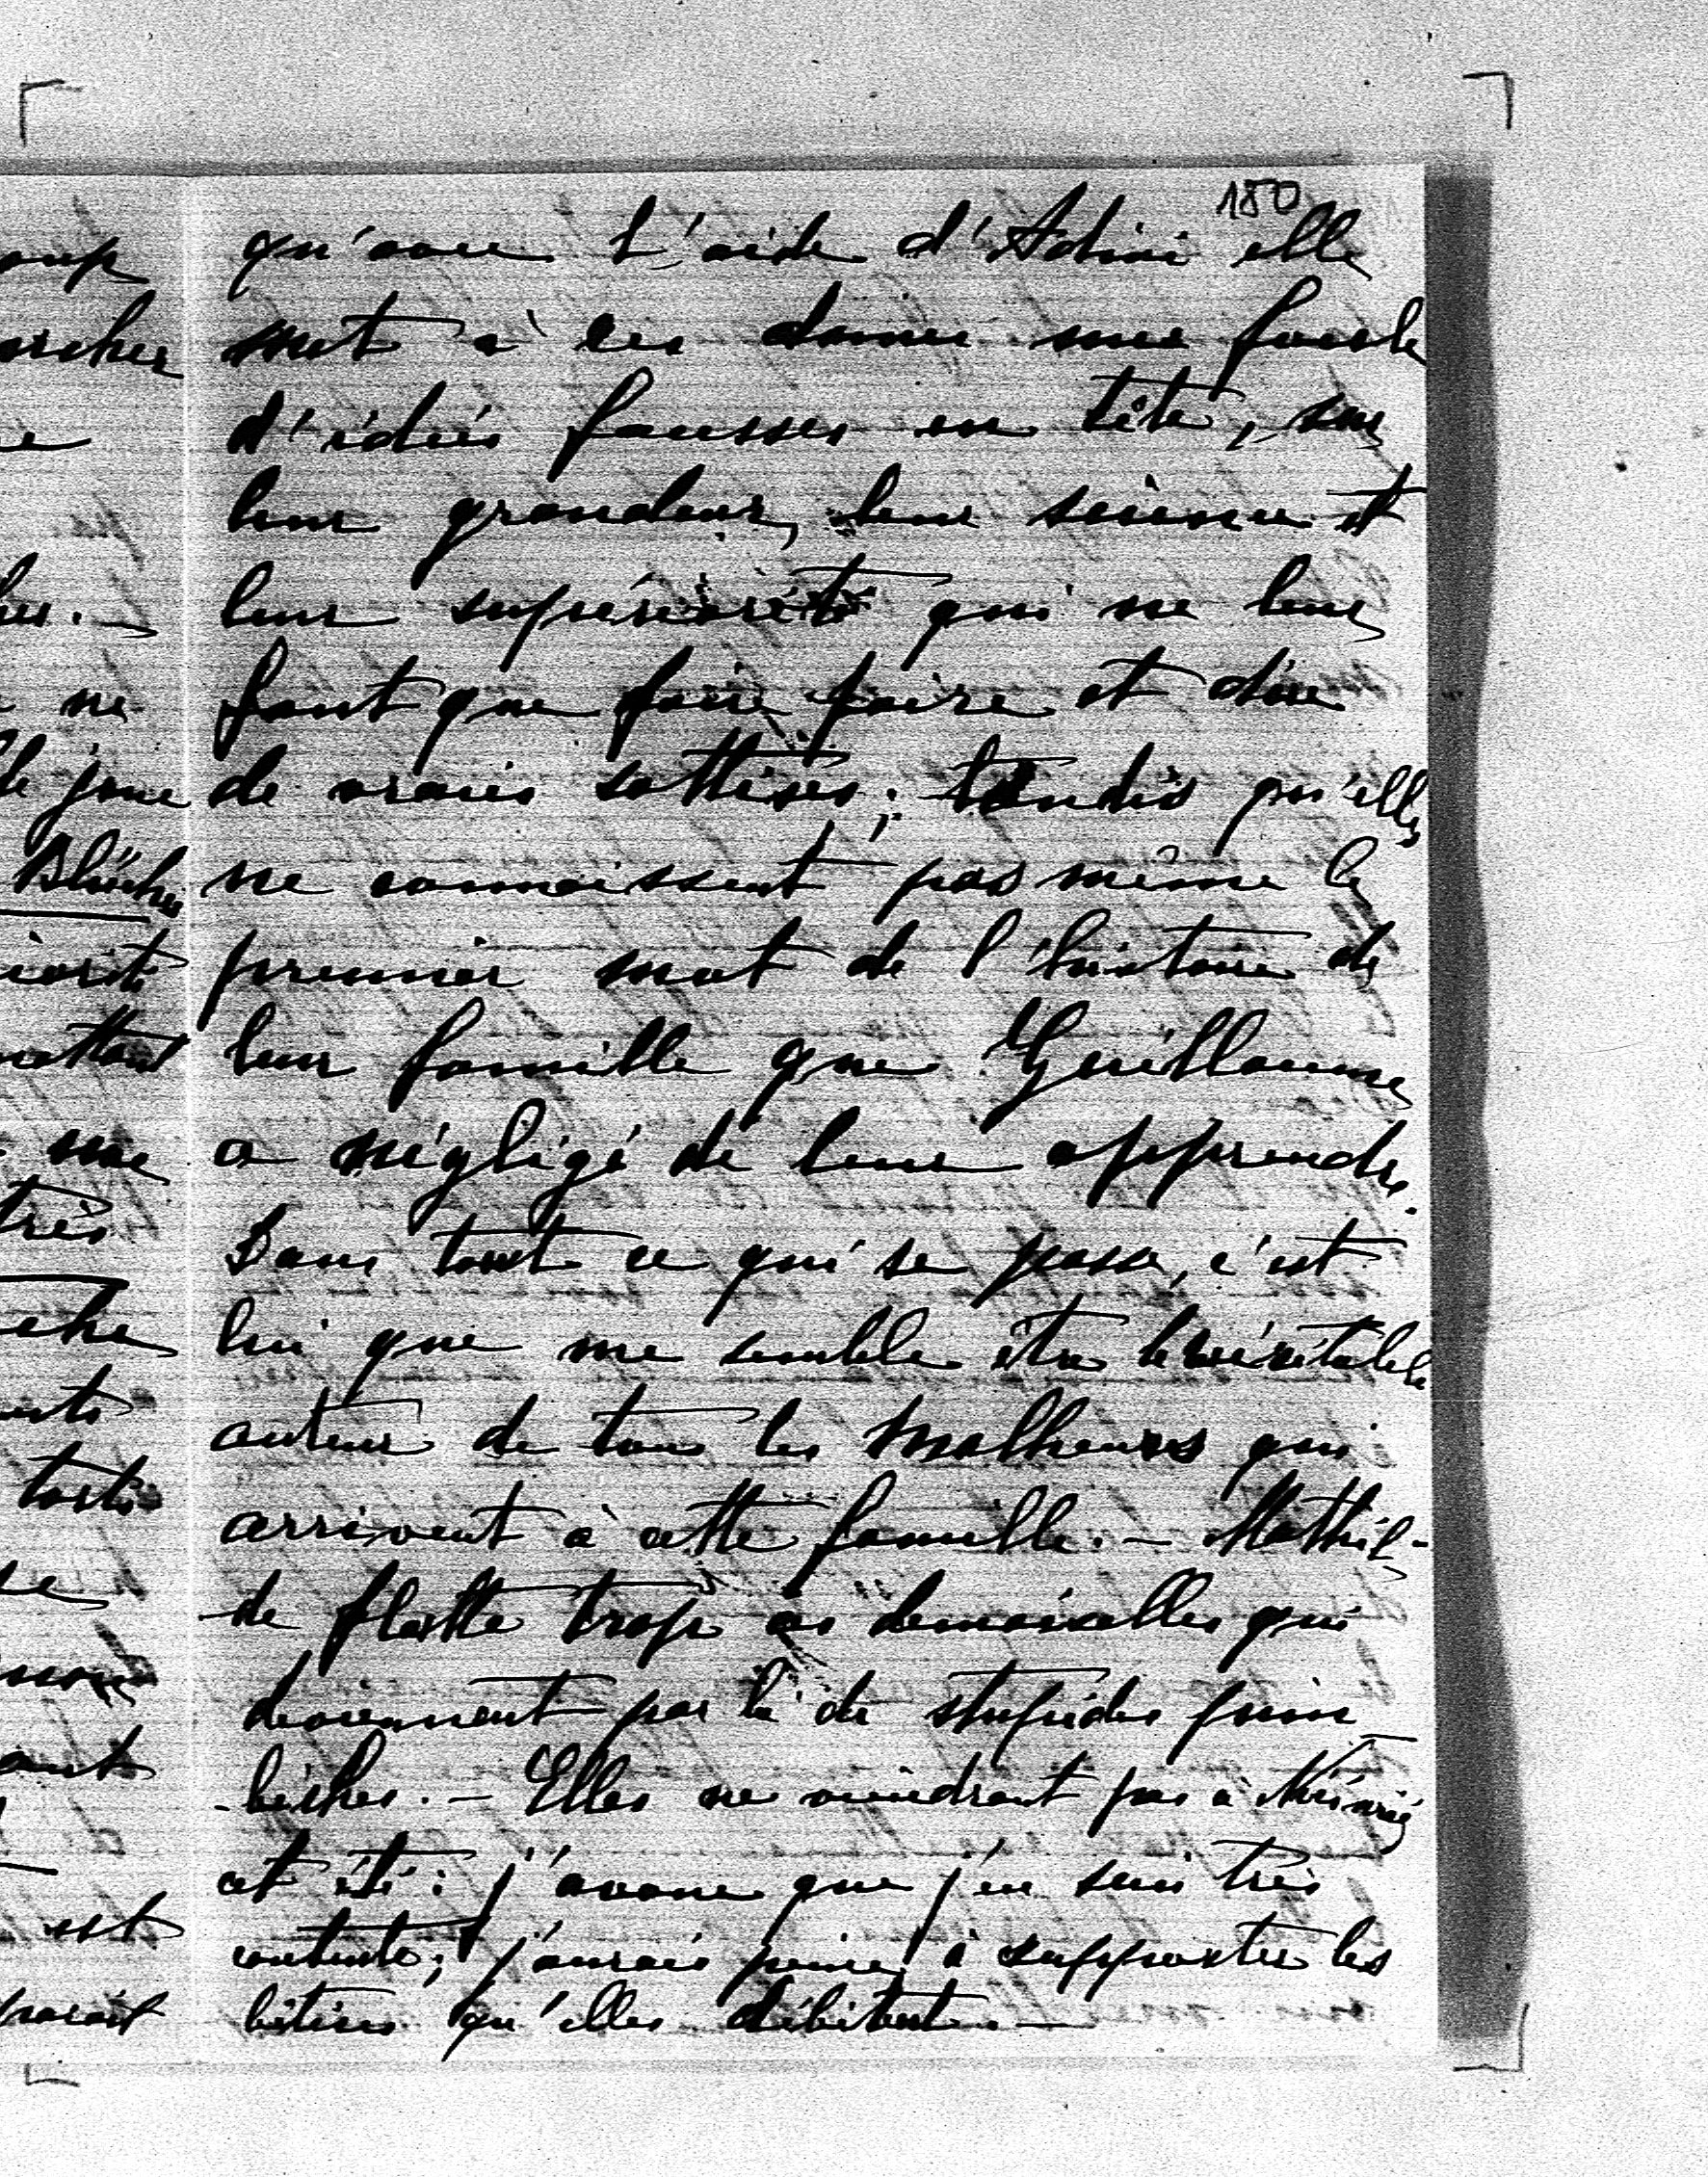 180
qu'avec l'aide d'Adini elle
met à les donner une foule
d'idées fausses en tête, sur
leur grandeur, leur science et
leur supériorité qui ne leur
font que faire faire et dire
de vraies sottises; tandis qu'elles
ne connaissent pas même le
premier mot de l'histoire de
leur famille que Guillaume
a négligé de leur apprendre.
Dans tout ce qui se passe, c'est
lui que me semble être le véritable
auteur de tous les malheurs qui
arrivent à cette famille. – Mathil-
de flatte trop ces demoiselles qui
deviennent par là de stupides pim
bêches. – Elles ne viendront pas à
cet été: j'avoue que j'en suis très
contente; j'aurais peine à supporter les
bêtises qu'elles débitent. –
oup
archer
ne
de jour
Blücher
iorité
mettant
une
très
torts
est
parait